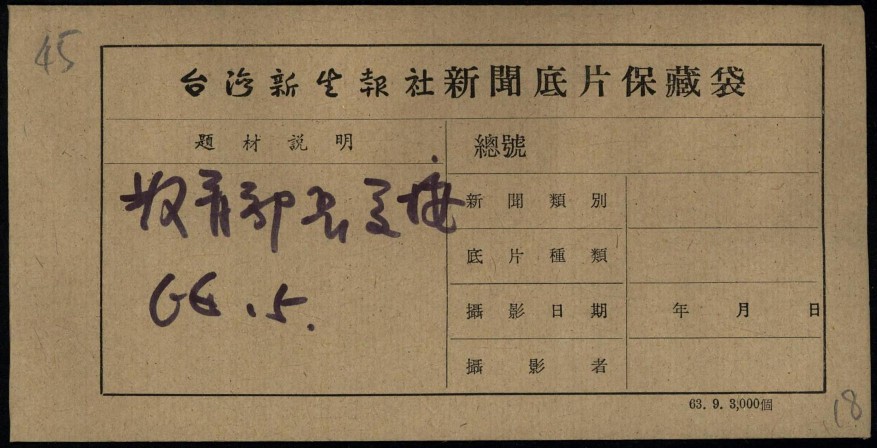 45
台灣新生報社新聞底片保藏袋
題材説明
總號
教育部長交接
66.5.
新聞類別
底片種類
攝影日期 年 月 日
攝影者
63. 9. 3,000個
18